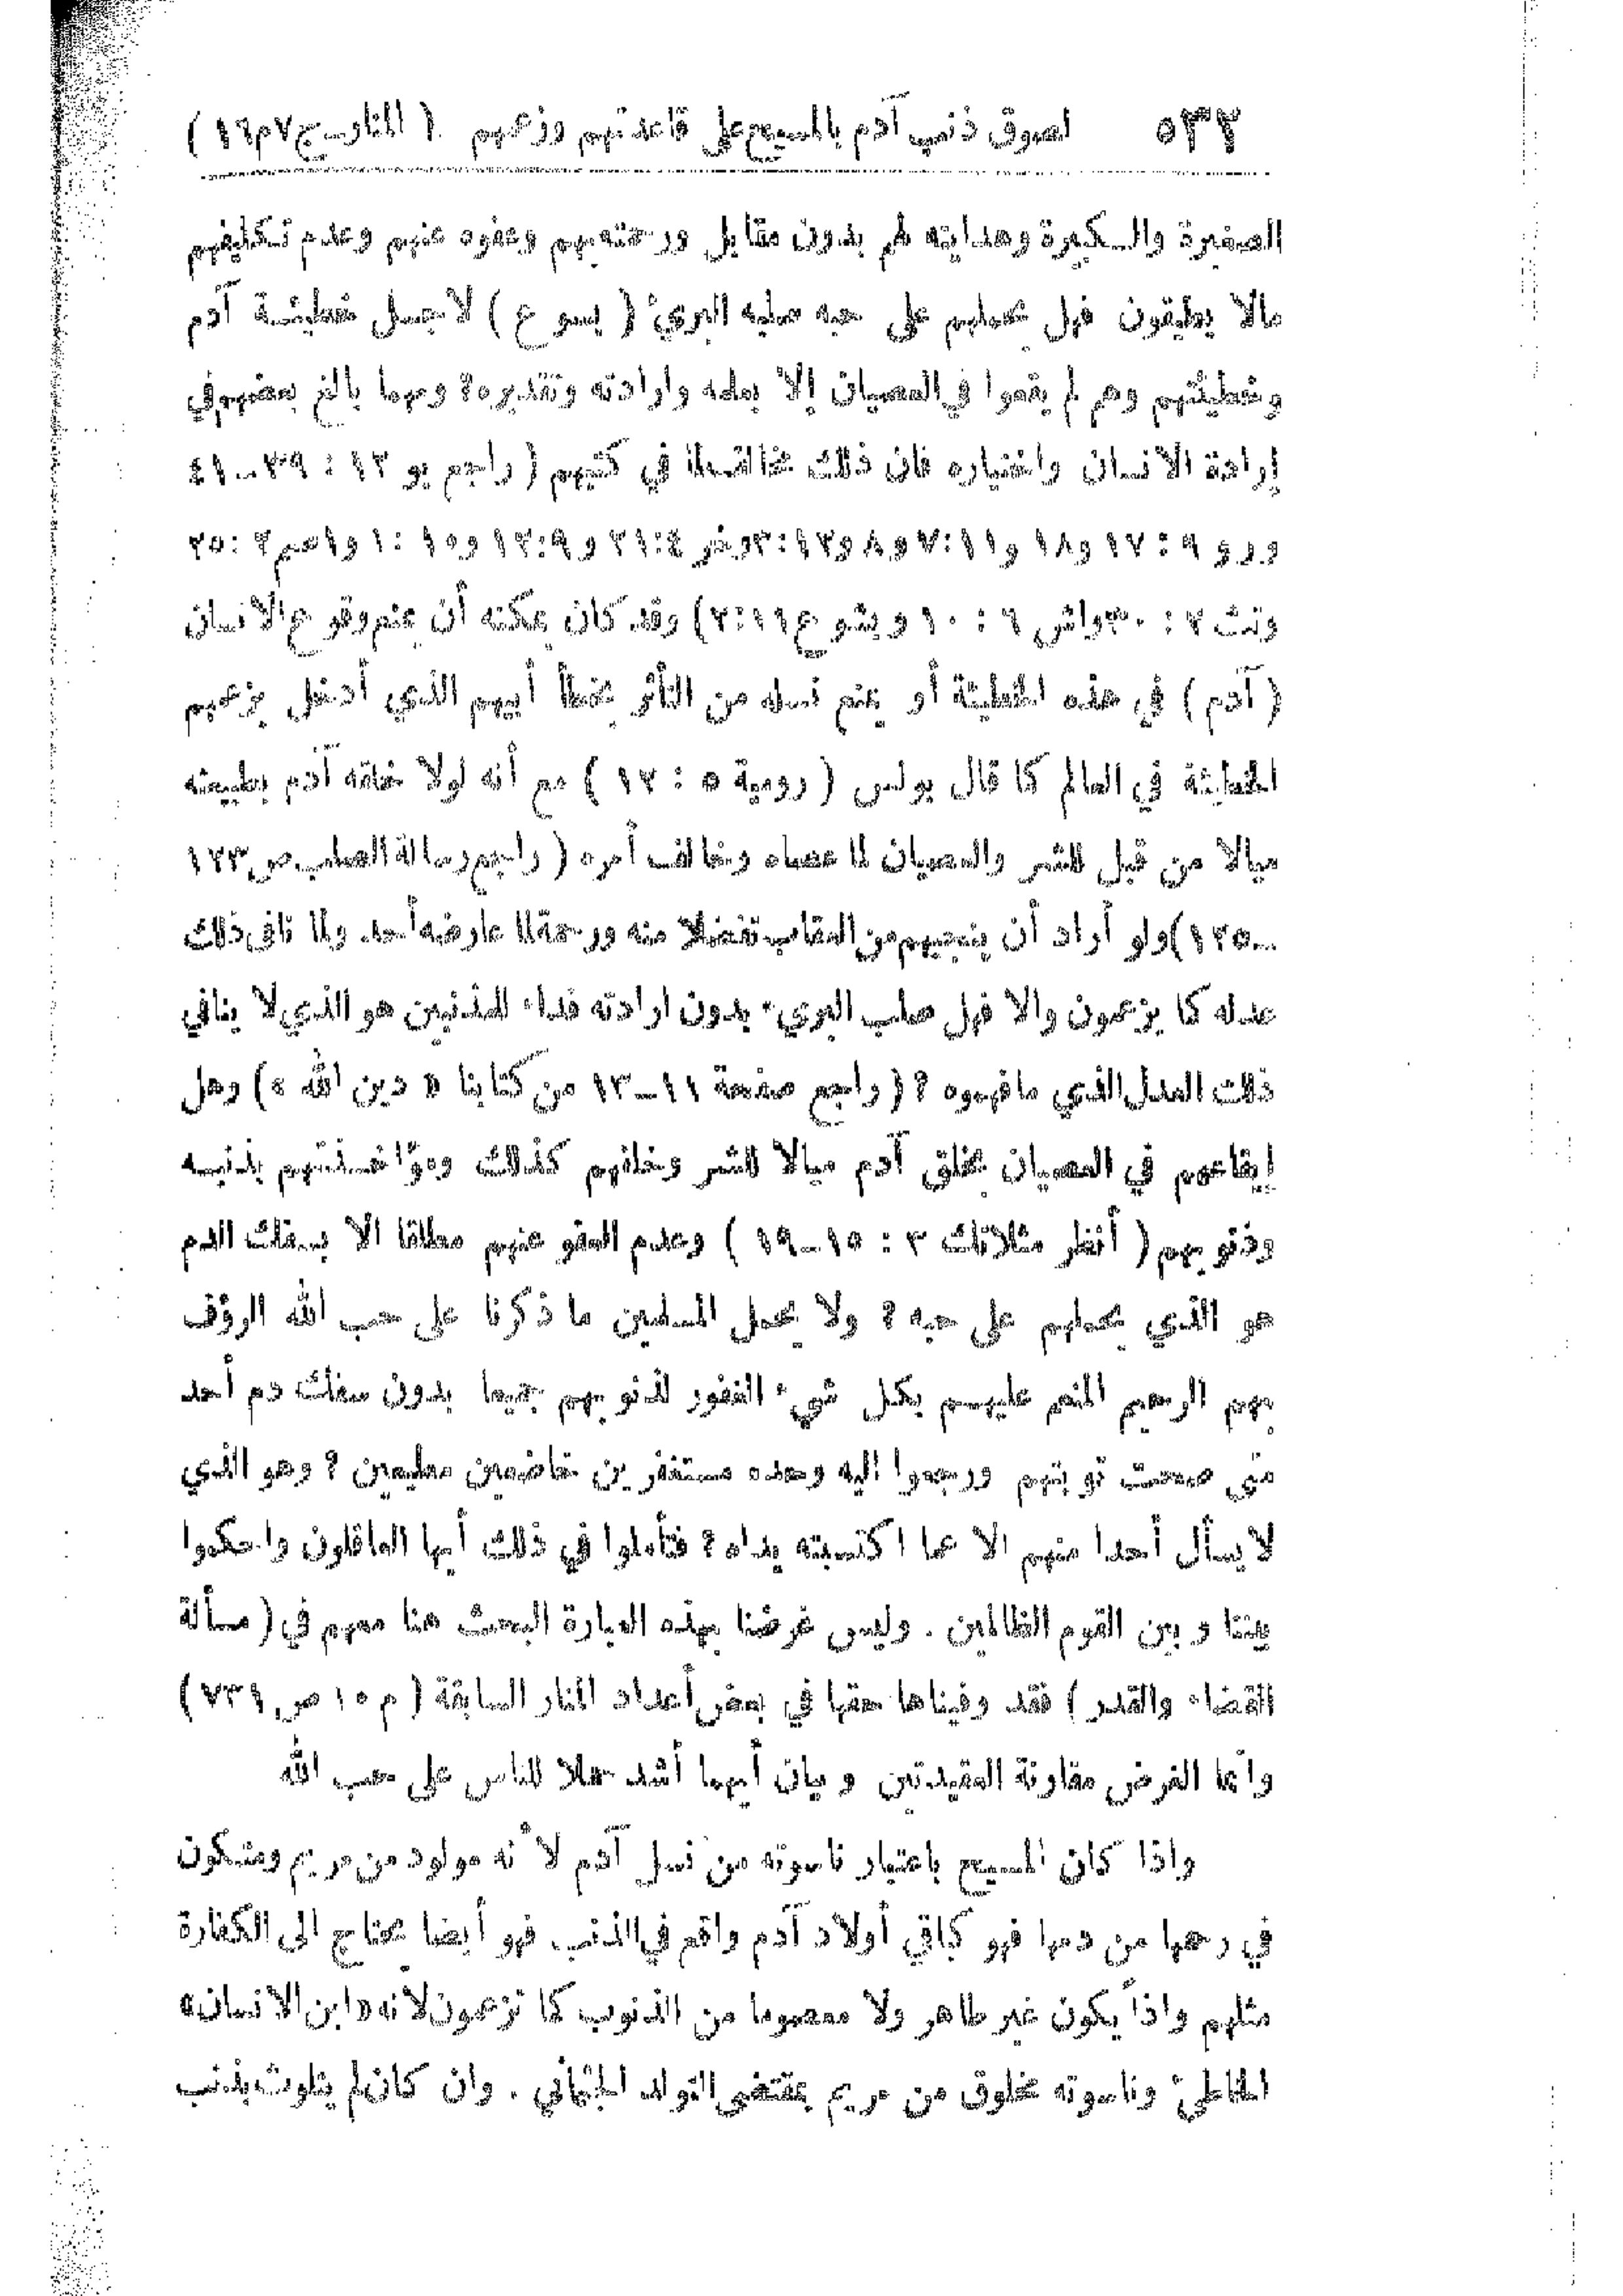 ٥٣٢ لصوق ذنب آدم بالمسيح على قاعدتهم وزعمهم . ( المنار - ج ٧ م ١٦ )
الصغيرة والكبيرة وهدايته لهم بدون مقابل ورحمته بهم وعفوه عنهم وعدم تكليفهم
مالا يطيقون فهل يحملهم على حبه صلبه البريء ( يسوع ) لاجل خطيئة آدم
وخطيئتهم وهم لم يقعوا في العصيان إلا بعلمه وارادته وتقديره ؟ ومهما بالغ بعضهم في
إرادة الانسان واختياره فان ذلك مخالف لما في كتبهم ( راجع يو ١٢ : ٣٩ - ٤١
ورو ٩ : ١٧ و ١٨ و ١١ : ٧ و ٨ و ١٢ : ٣ وخر ٤ : ٢١ و ٩ : ١٢ و ١٠ : ١ و ١ صم ٢ : ٢٥
وتث ٢ : ٣٠ واش ٦ : ١٠ ويشوع ١١ : ٢ ) وقد كان يمكنه أن يمنع وقوع الانسان
( آدم ) في هذه الخطيئة أو يمنع نسله من التأثر بخطأ أبيهم الذي أدخل بزعمهم
الخطيئة في العالم كما قال بولس ( رومية ٥ : ١٢ ) مع أنه لولا خلقه آدم بطبيعته
ميالا من قبل للشر والعصيان لما عصاه وخالف أمره ( راجع رسالة الصلب ص ١٢٣
- ١٢٥ ) ولو أراد أن ينجيهم من العقاب تفضلا منه ورحمة لما عارضه أحد ولما نافى ذلك
عدله كما يزعمون والا فهل صلب البريء بدون ارادته فداء للمذنبين هو الذي لا ينافي
ذلك العدل الذي ما فهموه ؟ ( راجع صفحة ١١ - ١٣ من كتابنا « دين الله » ) وهل
إيقاعهم في العصيان بخلق آدم ميالا للشر وخلقهم كذلك ومؤاخذتهم بذنبه
وذنوبهم ( أنظر مثلا تك ٣ : ١٥ - ١٩ ) وعدم العفو عنهم مطلقا الا بسفك الدم
هو الذي يحملهم على حبه ؟ ولا يحمل المسلمين ما ذكرنا على حب الله الرؤف
بهم الرحيم المنعم عليهم بكل شيء الغفور لذنوبهم جميعا بدون سفك دم أحد
متى صحت توبتهم ورجعوا اليه وحده مستغفرين خاضعين مطيعين ؟ وهو الذي
لا يسأل أحدا منهم الا عما اكتسبته يداه ؟ فتأملوا في ذلك أيها العاقلون واحكموا
بيننا وبين القوم الظالمين . وليس غرضنا بهذه العبارة البحث هنا معهم في ( مسألة
القضاء والقدر ) فقد وفيناها حقها في بعض أعداد المنار السابقة ( م ١٠ ص ٧٣٩ )
وانما الغرض مقارنة العقيدتين وبيان أيهما أشد حملا للناس على حب الله
واذا كان المسيح باعتبار ناسوته من نسل آدم لأنه مولود من مريم ومتكون
في رحمها من دمها فهو كباقي أولاد آدم واقع في الذنب فهو أيضا محتاج الى الكفارة
مثلهم واذاً يكون غير طاهر ولا معصوما من الذنوب كما تزعمون لانه « ابن الانسان »
الخاطئ وناسوته مخلوق من مريم بمقتضى التولد الجثماني . وان كان لم يتلوث بذنب